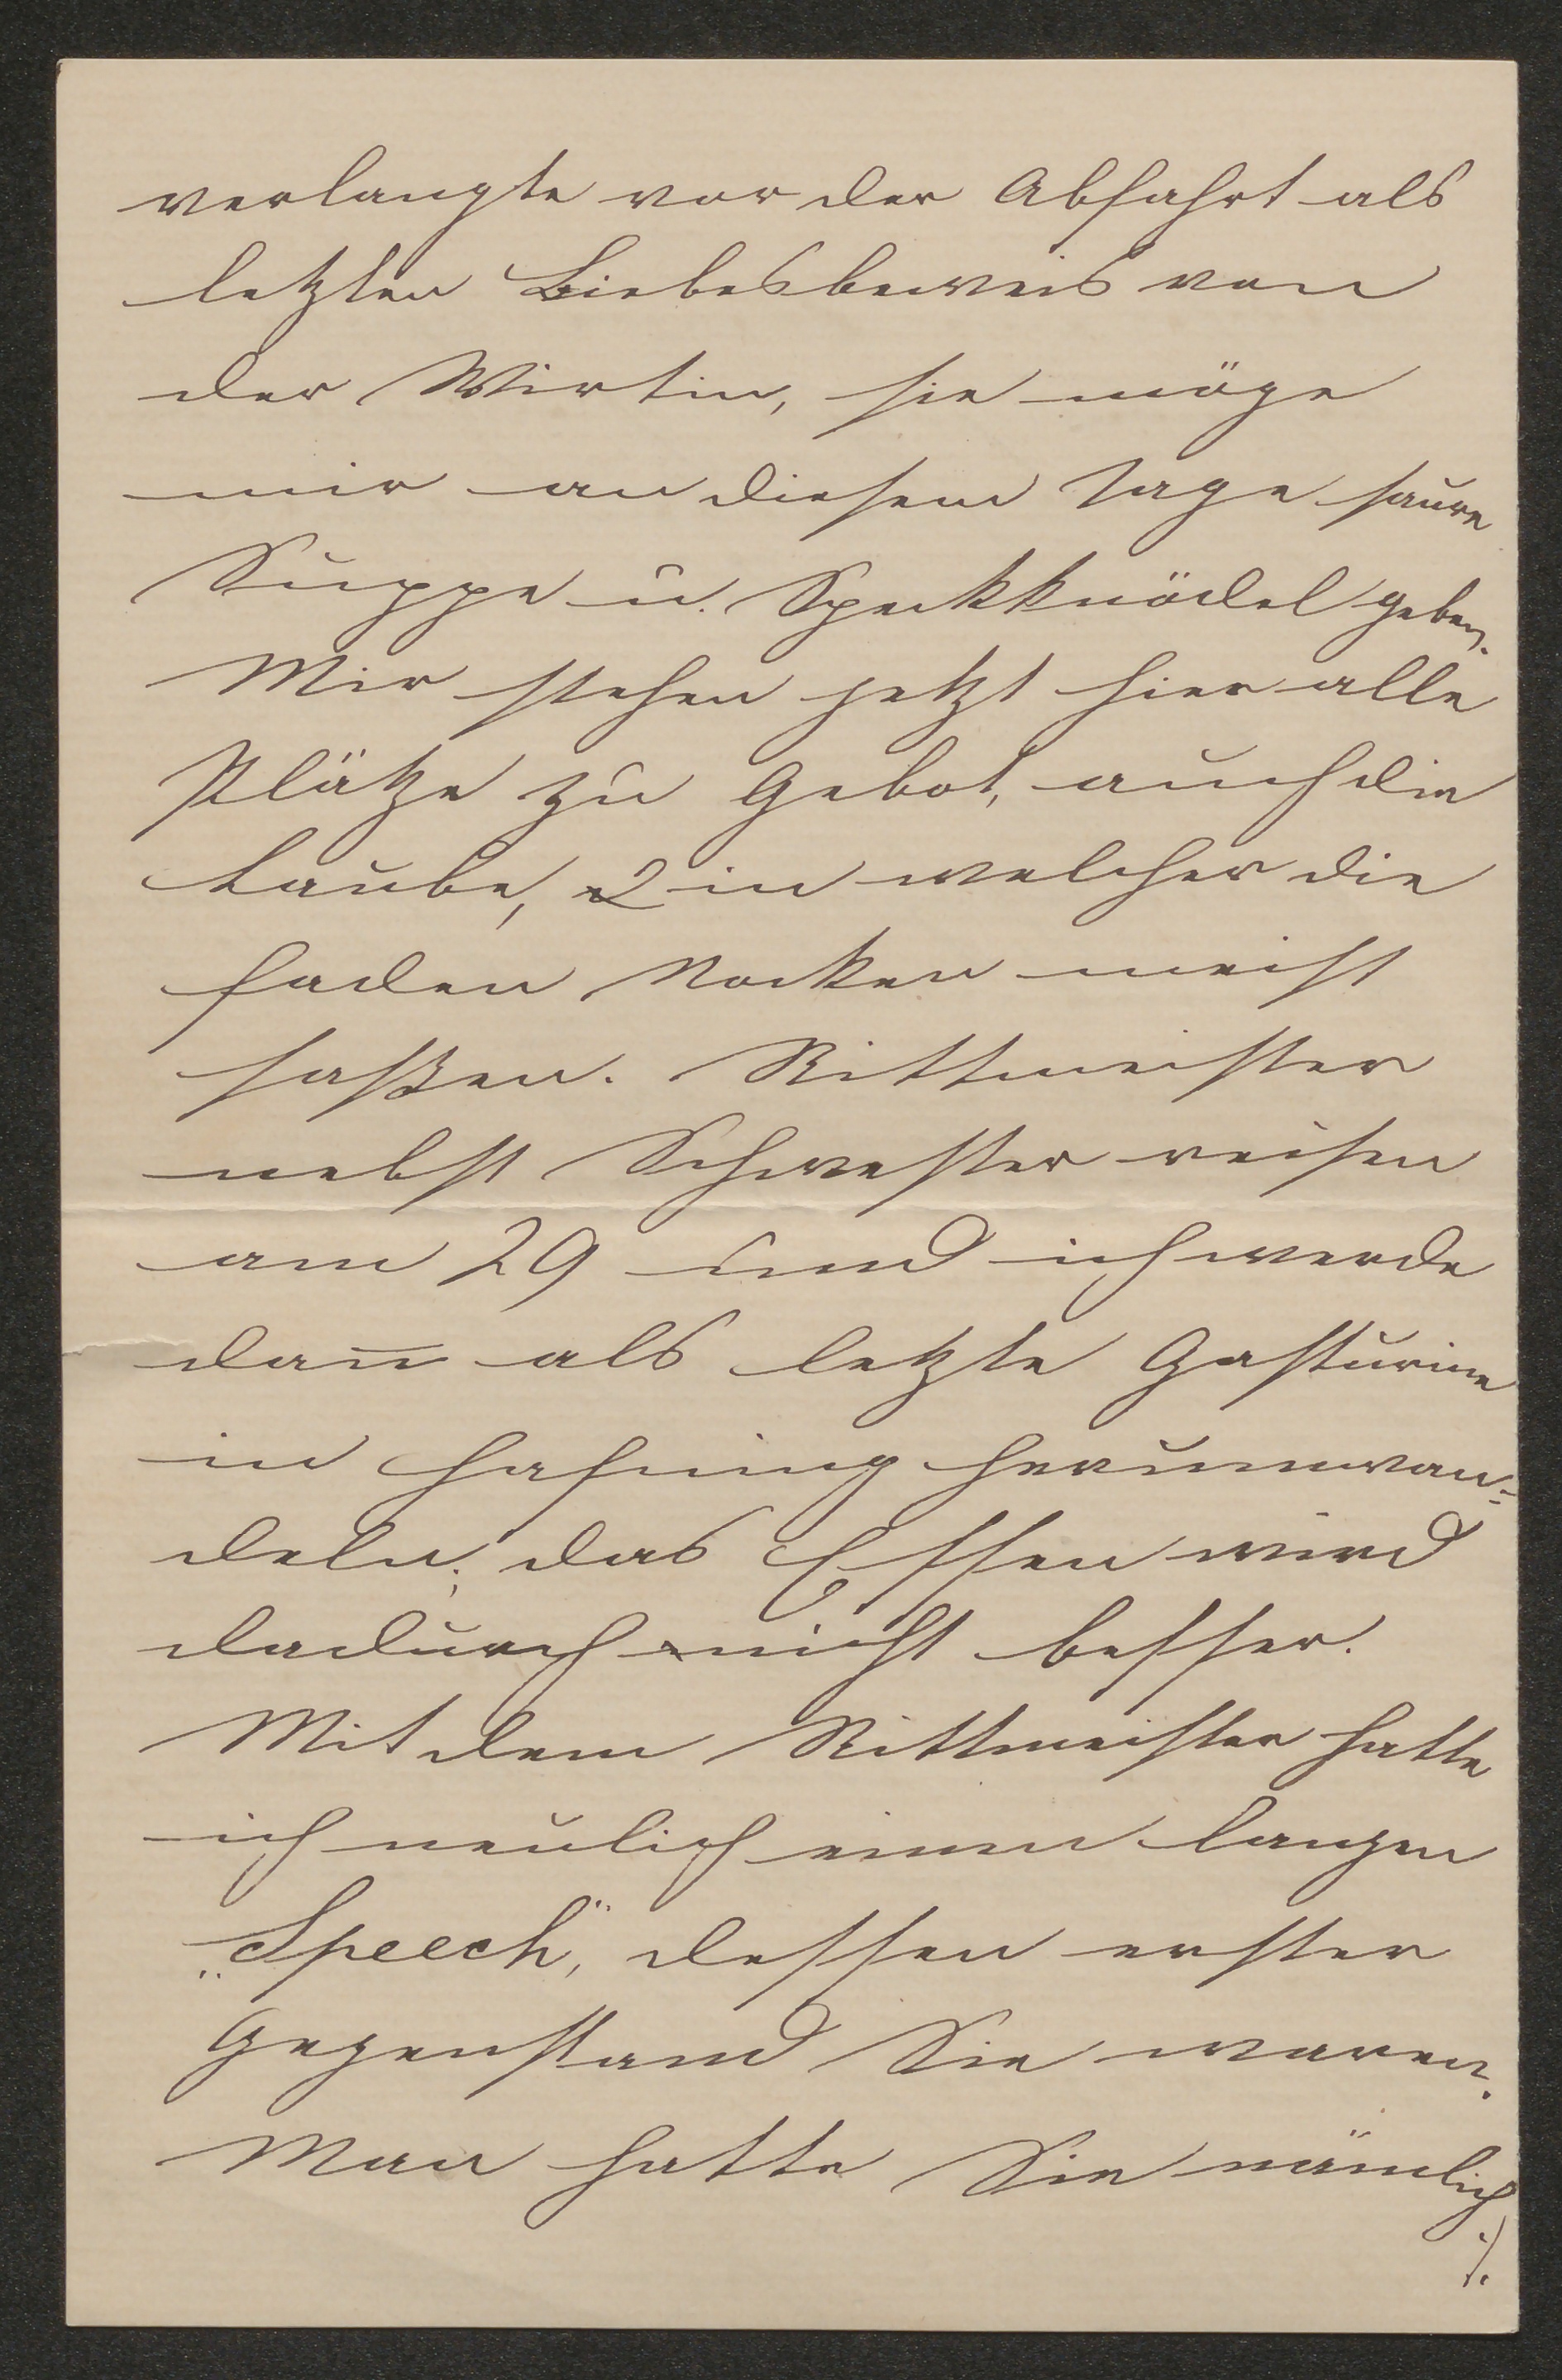 verlangte vor der Abfahrt als
letzten Liebesbeweis von
der Wirtin, sie möge
mir an diesem Tage saure
Suppe u. Speckknödel geben.
Mir stehen jetzt hier alle
Plätze zu Gebot, auch die
Laube, in welcher die
faden Nocken meist
saßen. Rittmeister
nebst Schwester reisen
am 29 und ich werde
dan̅ als letzte
in herumwan=
deln; das Essen wird
dadurch nicht besser.
Mit dem Rittmeister hatte
ich neulich einen langen
„Speech“, dessen erster
Gegenstand Sie waren.
Man hatte Sie nämlich
./.